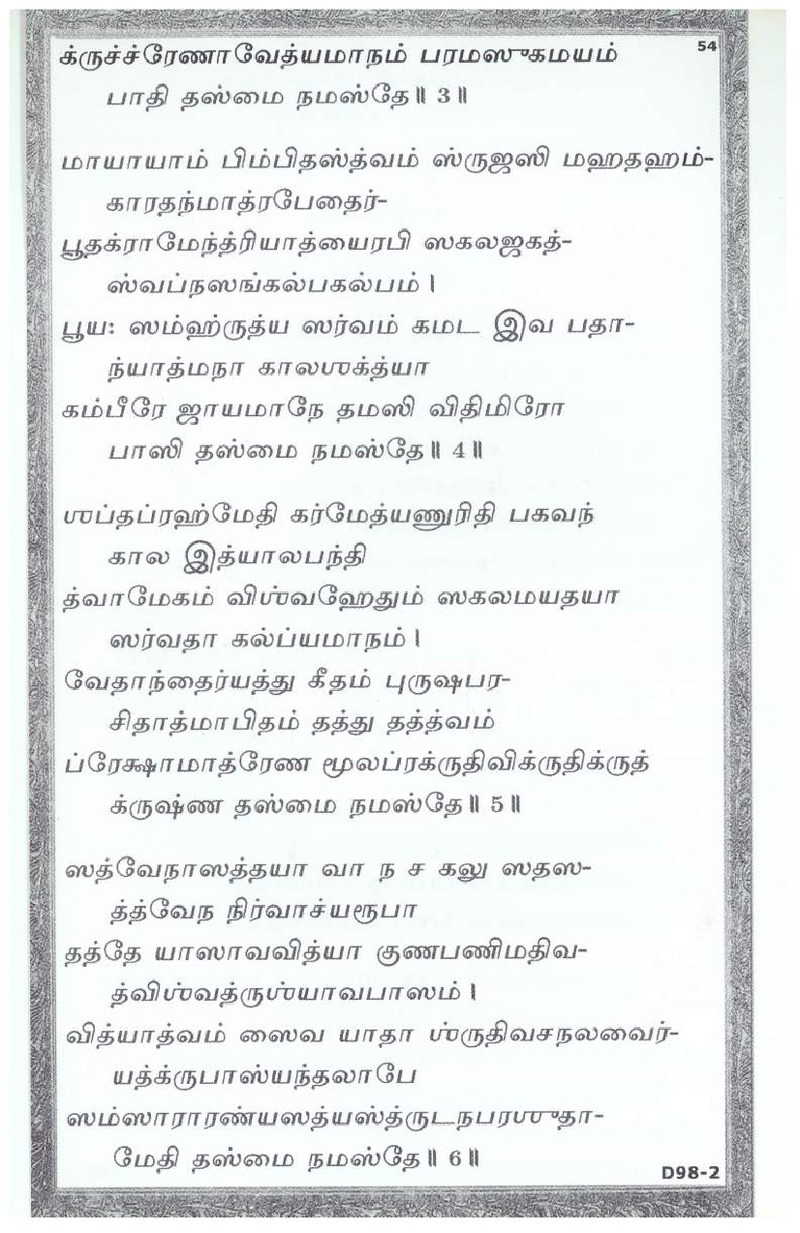 க்ருச்ச்ரேணாவேத்யமாநம் பரமஸுகமயம்
54
பாதி தஸ்மை நமஸ்தே॥ 3॥
மாயாயாம் பிம்பிதஸ்த்வம் ஸ்ருஜஸி மஹதஹம்-
காரதந்மாத்ரபேதைர்-
பூதக்ராமேந்த்ரியாத்யைரபி ஸகலஜகத்-
ஸ்வப்நஸங்கல்பகல்பம்।
பூய: ஸம்ஹ்ருத்ய ஸர்வம் கமட இவ பதா-
ந்யாத்மநா காலஶக்த்யா
கம்பீரே ஜாயமாநே தமஸி விதிமிரோ
பாஸி தஸ்மை நமஸ்தே॥ 4॥
ஶப்தப்ரஹ்மேதி கர்மேத்யணுரிதி பகவந்
கால இத்யாலபந்தி
த்வாமேகம் விஶ்வஹேதும் ஸகலமயதயா
ஸர்வதா கல்ப்யமாநம்।
வேதாந்தைர்யத்து கீதம் புருஷபர-
சிதாத்மாபிதம் தத்து தத்த்வம்
ப்ரேக்ஷாமாத்ரேண மூலப்ரக்ருதிவிக்ருதிக்ருத்
க்ருஷ்ண தஸ்மை நமஸ்தே॥ 5॥
ஸத்வேநாஸத்தயா வா ந ச கலு ஸதஸ-
த்த்வேந நிர்வாச்யரூபா
தத்தே யாஸாவவித்யா குணபணிமதிவ-
த்விஶ்வத்ருஶ்யாவபாஸம்।
வித்யாத்வம் ஸைவ யாதா ஶ்ருதிவசநலவைர்-
யத்க்ருபாஸ்யந்தலாபே
ஸம்ஸாராரண்யஸத்யஸ்த்ருடநபரஶுதா-
மேதி தஸ்மை நமஸ்தே॥ 6॥
D98-2